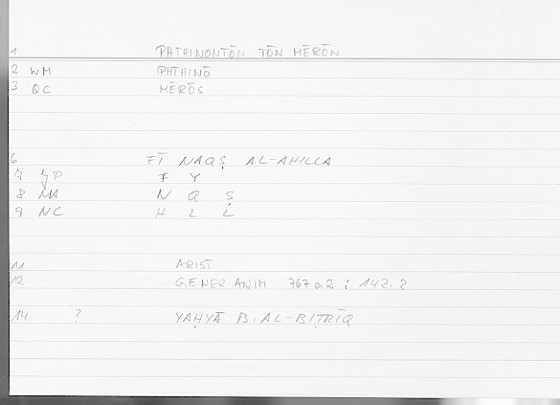 1 PHTHINONTŌN TŌN MĒRŌN
2 WM PHTHINŌ
3 QC MĒROS
6 FĪ NAQṢ AL-AHILLA
7 YP F Y
8 MA N Q Ṣ
9 NC H L L
11 ARIST
12 GENER ANIM 767 a 2 ; 142. 2
14 ? YAḤYĀ B. AL-BIṬRĪQ